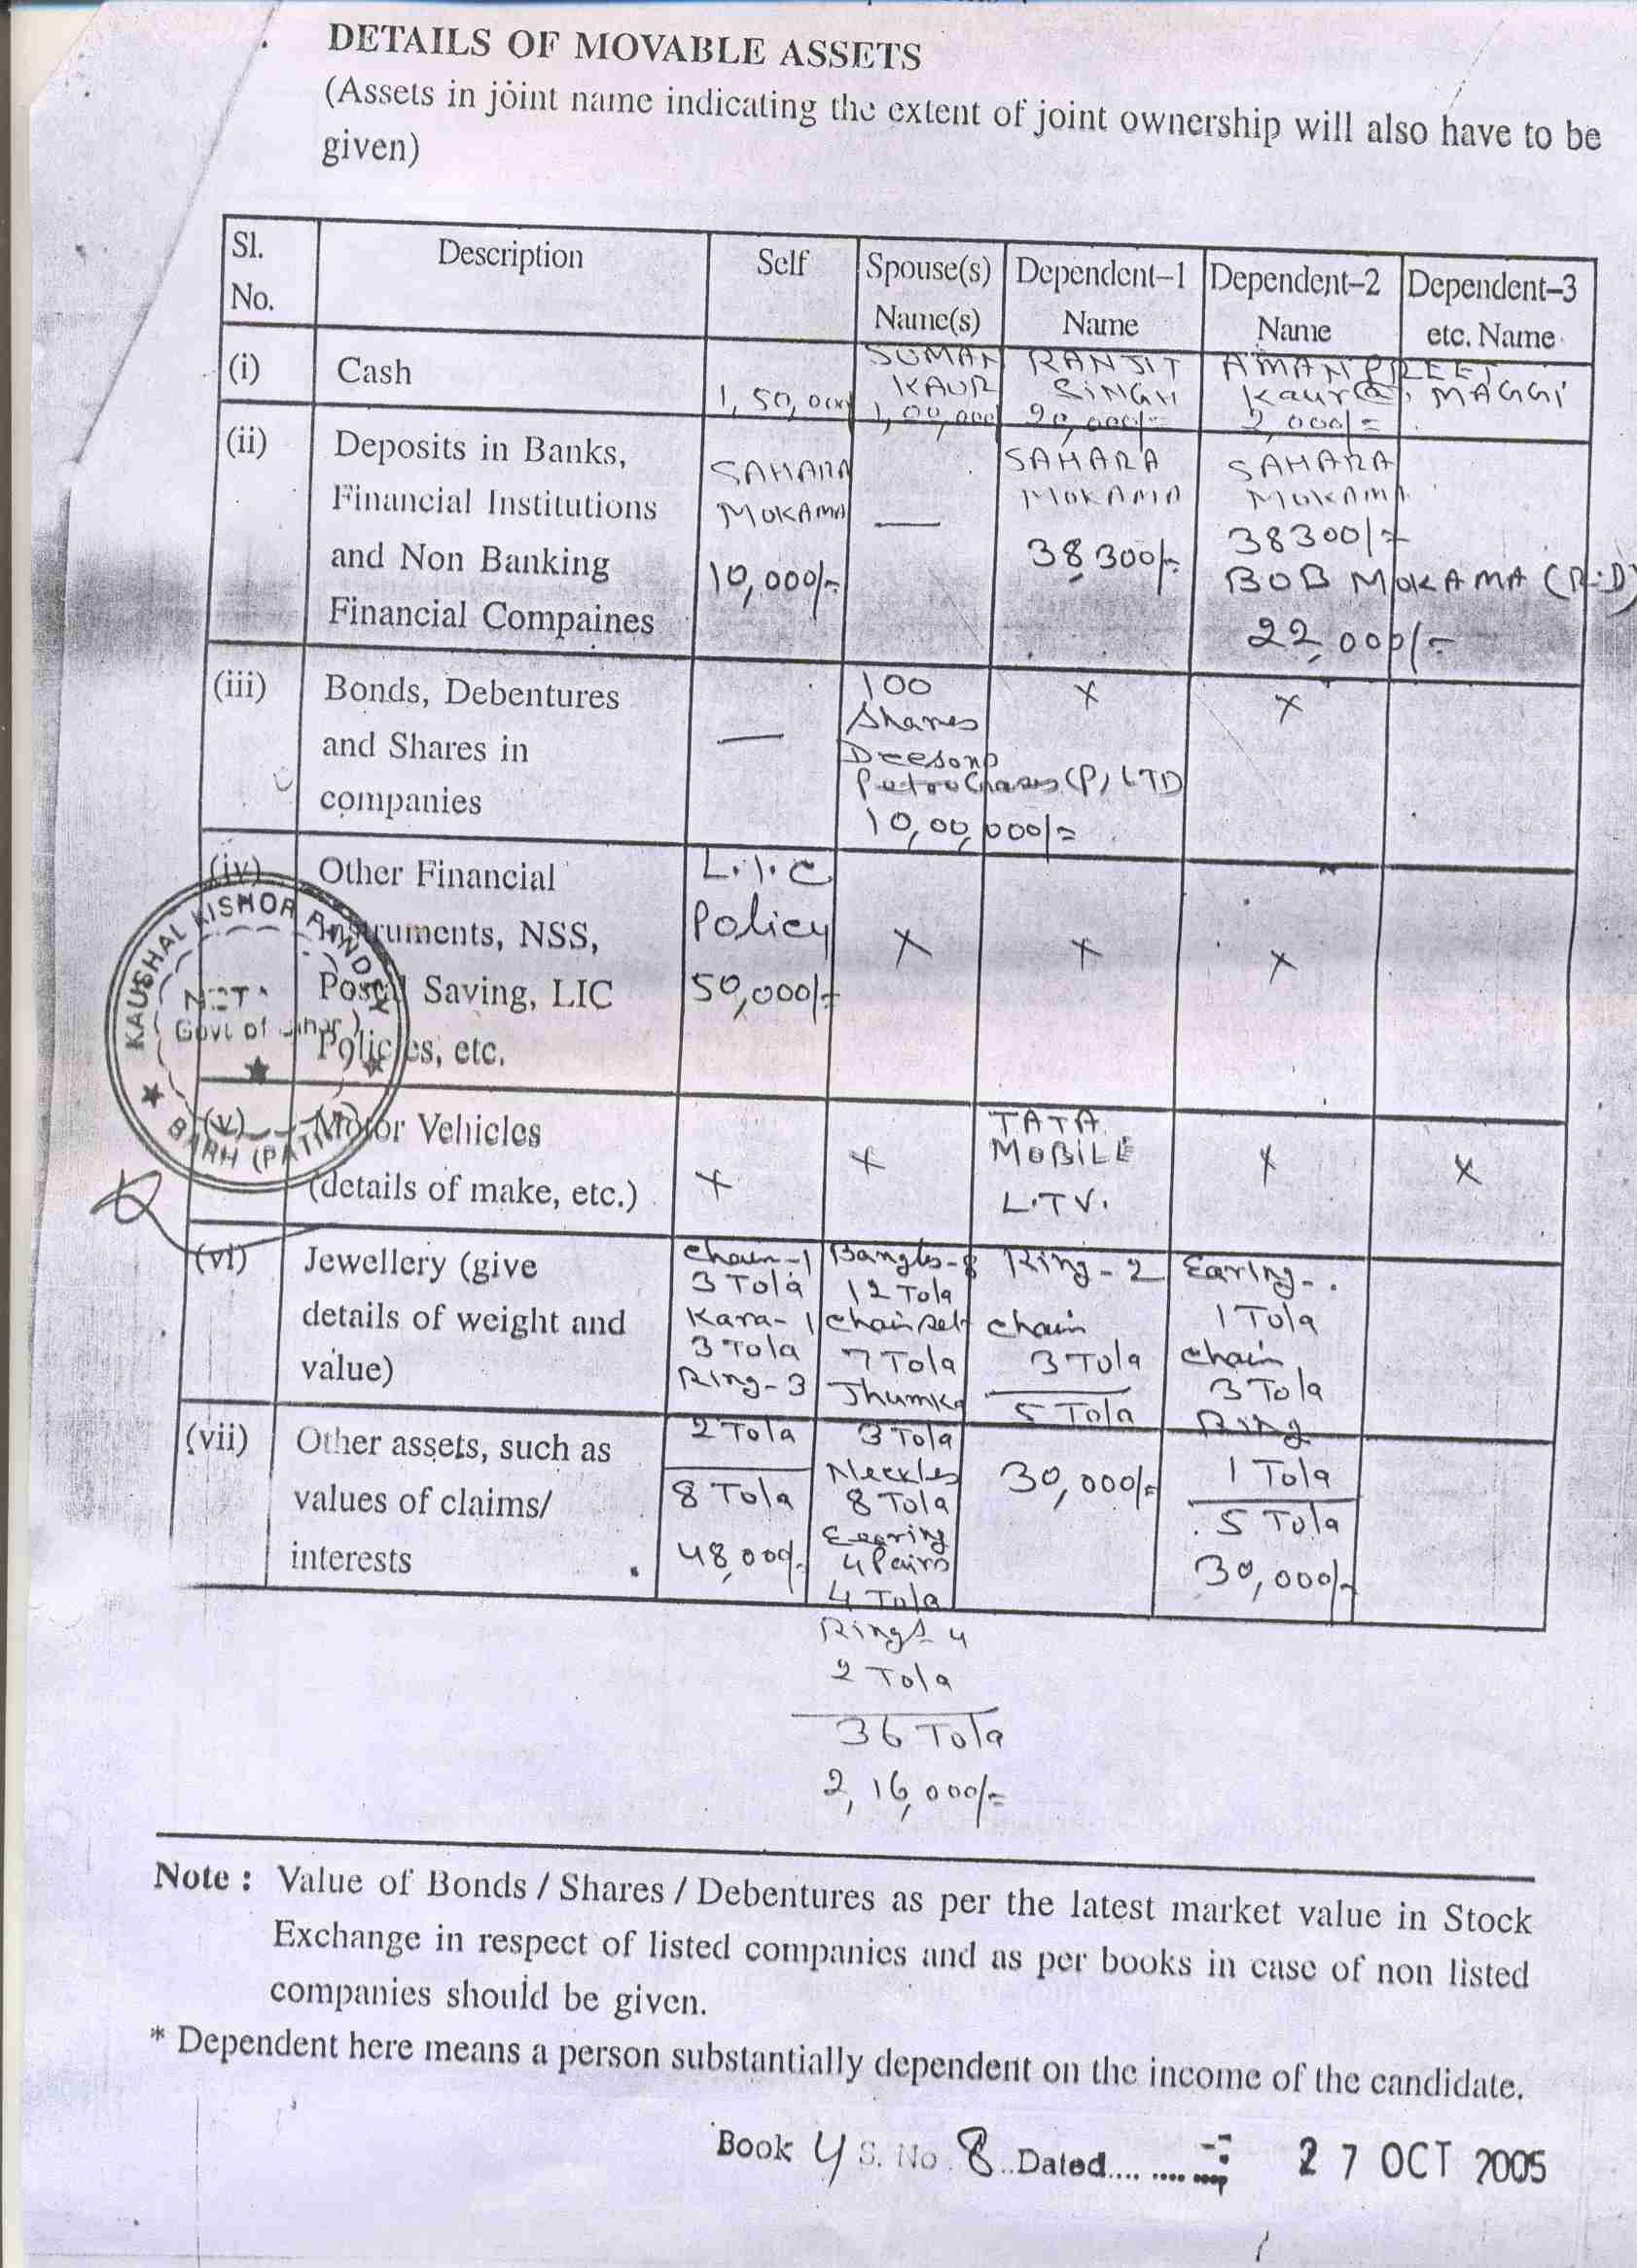 DETAILS OF MOVABLE ASSETS
(Assets in joint name indicating the extent of joint ownership will also have to be
given)
Sl. No. Description Self Spouse(s) Name(s) Dependent–1 Name Dependent–2 Name Dependent–3 etc. Name
(i) Cash
1,50,000
SUMAN
KAUR
1,00,000
RANJIT
SINGH
20,000/=
AMANPREET
Kaur@, MAGGI
2,000/=
(ii) Deposits in Banks,
Financial Institutions
and Non Banking
Financial Compaines
SAHARA
MOKAMA
10,000/-
—
SAHARA
MOKAMA
38,300/-
SAHARA
MOKAMA
38300/=
BOB MOKAMA (R.D)
22,000/-
(iii) Bonds, Debentures
and Shares in
companies
—
100
Shares
Deeson
(P) LTD
10,00,000/=
×
×
(iv) Other Financial
Instruments, NSS,
Postal Saving, LIC
Policies, etc.
L.I.C
Policy
50,000/-
×
×
×
(v) Motor Vehicles
(details of make, etc.)
×
×
TATA
MOBILE
L.T.V.
×
×
(vi) Jewellery (give
details of weight and
value)
(vii) Other assets, such as
values of claims/
interests
Chain-1
3 Tola
Kara-1
3 Tola
Ring-3
2 Tola
8 Tola
48,000/-
Bangles-8
12 Tola
Chain set
7 Tola
Jhumka
3 Tola
Neckles
8 Tola
Eearing
4 Pairs
4 Tola
Rings-4
2 Tola
36 Tola
2,16,000/=
Ring-2
Chain
3 Tola
5 Tola
30,000/-
Earing-.
1 Tola
Chain
3 Tola
Ring
1 Tola
5 Tola
30,000/-
KAUSHAL KISHOR PANDEY
Govt of Bihar
BARH (PATNA)
Note : Value of Bonds / Shares / Debentures as per the latest market value in Stock
Exchange in respect of listed companies and as per books in case of non listed
companies should be given.
* Dependent here means a person substantially dependent on the income of the candidate.
Book 4 S. No. 8 Dated........ 27 OCT 2005